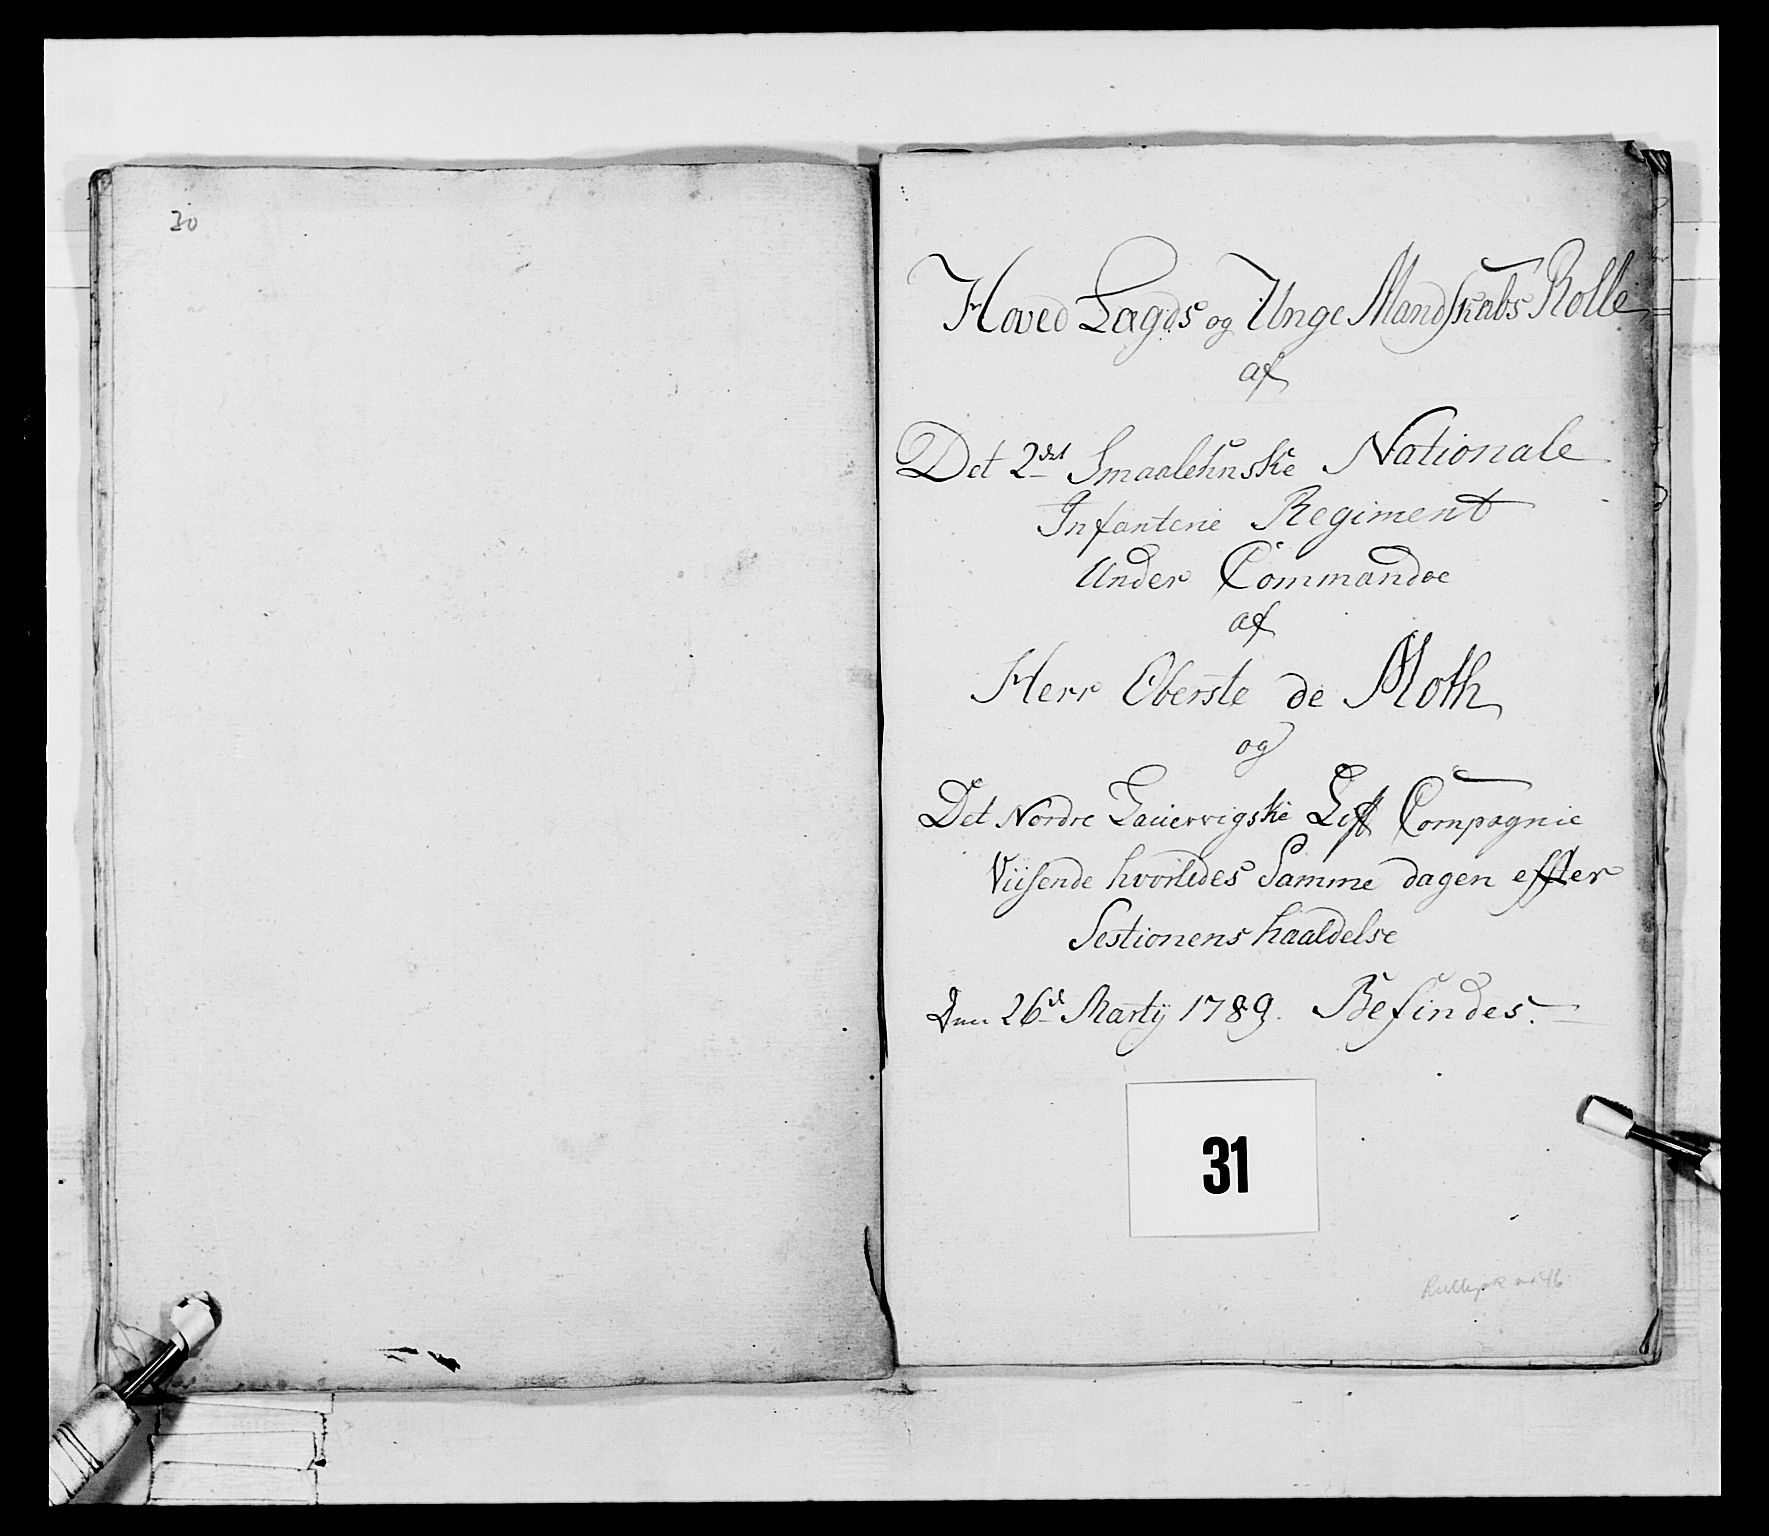 30
Hoved Lægds og Unge Mandskabs Rolle
af
Det 2det Smaalehnske Nationale
Infanterie Regiment
Under Commandoe
af
Herr Oberste de Moth
og
Det Nordre Lauervigske Lif Compagnie
Viisende hvorledes Samme dagen effter
Sestionens haaldelse
Den 26d Martij 1789. Befindes.
31